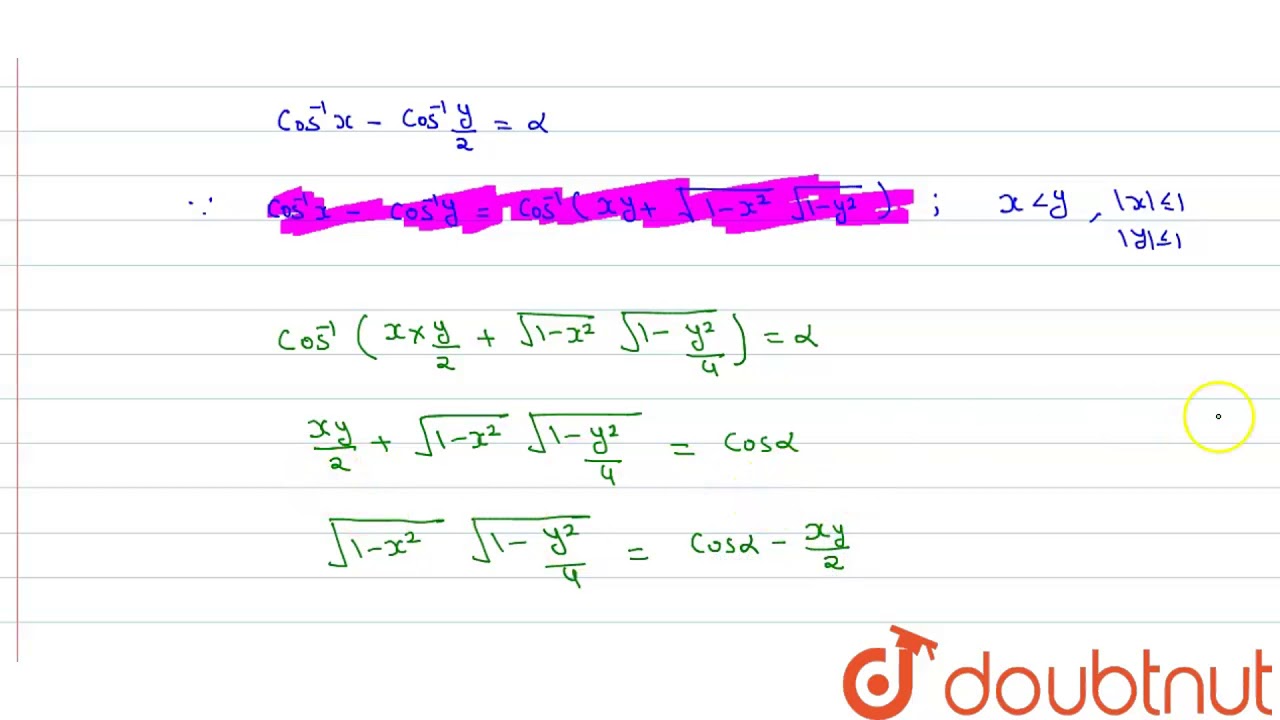 Cos⁻¹x − Cos⁻¹ y/2 = α
∵ Cos⁻¹x − Cos⁻¹y = Cos⁻¹(xy + √1−x² √1−y²) ; x<y , |x|≤1
|y|≤1
Cos⁻¹(x×y/2 + √1−x² √1−y²/4) = α
xy/2 + √1−x² √1−y²/4 = Cosα
√1−x² √1−y²/4 = Cosα − xy/2
doubtnut